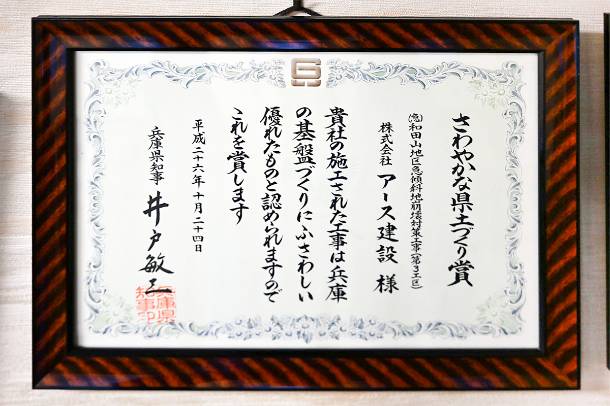 さわやかな県土づくり賞
(急)和田山地区急傾斜地崩壊対策工事(第3工区)
株式会社 アース建設 様
貴社の施工された工事は兵庫
の基盤づくりにふさわしい
優れたものと認められますので
これを賞します
平成二十六年十月二十四日
兵庫県知事 井戸敏三
兵庫県
知事印